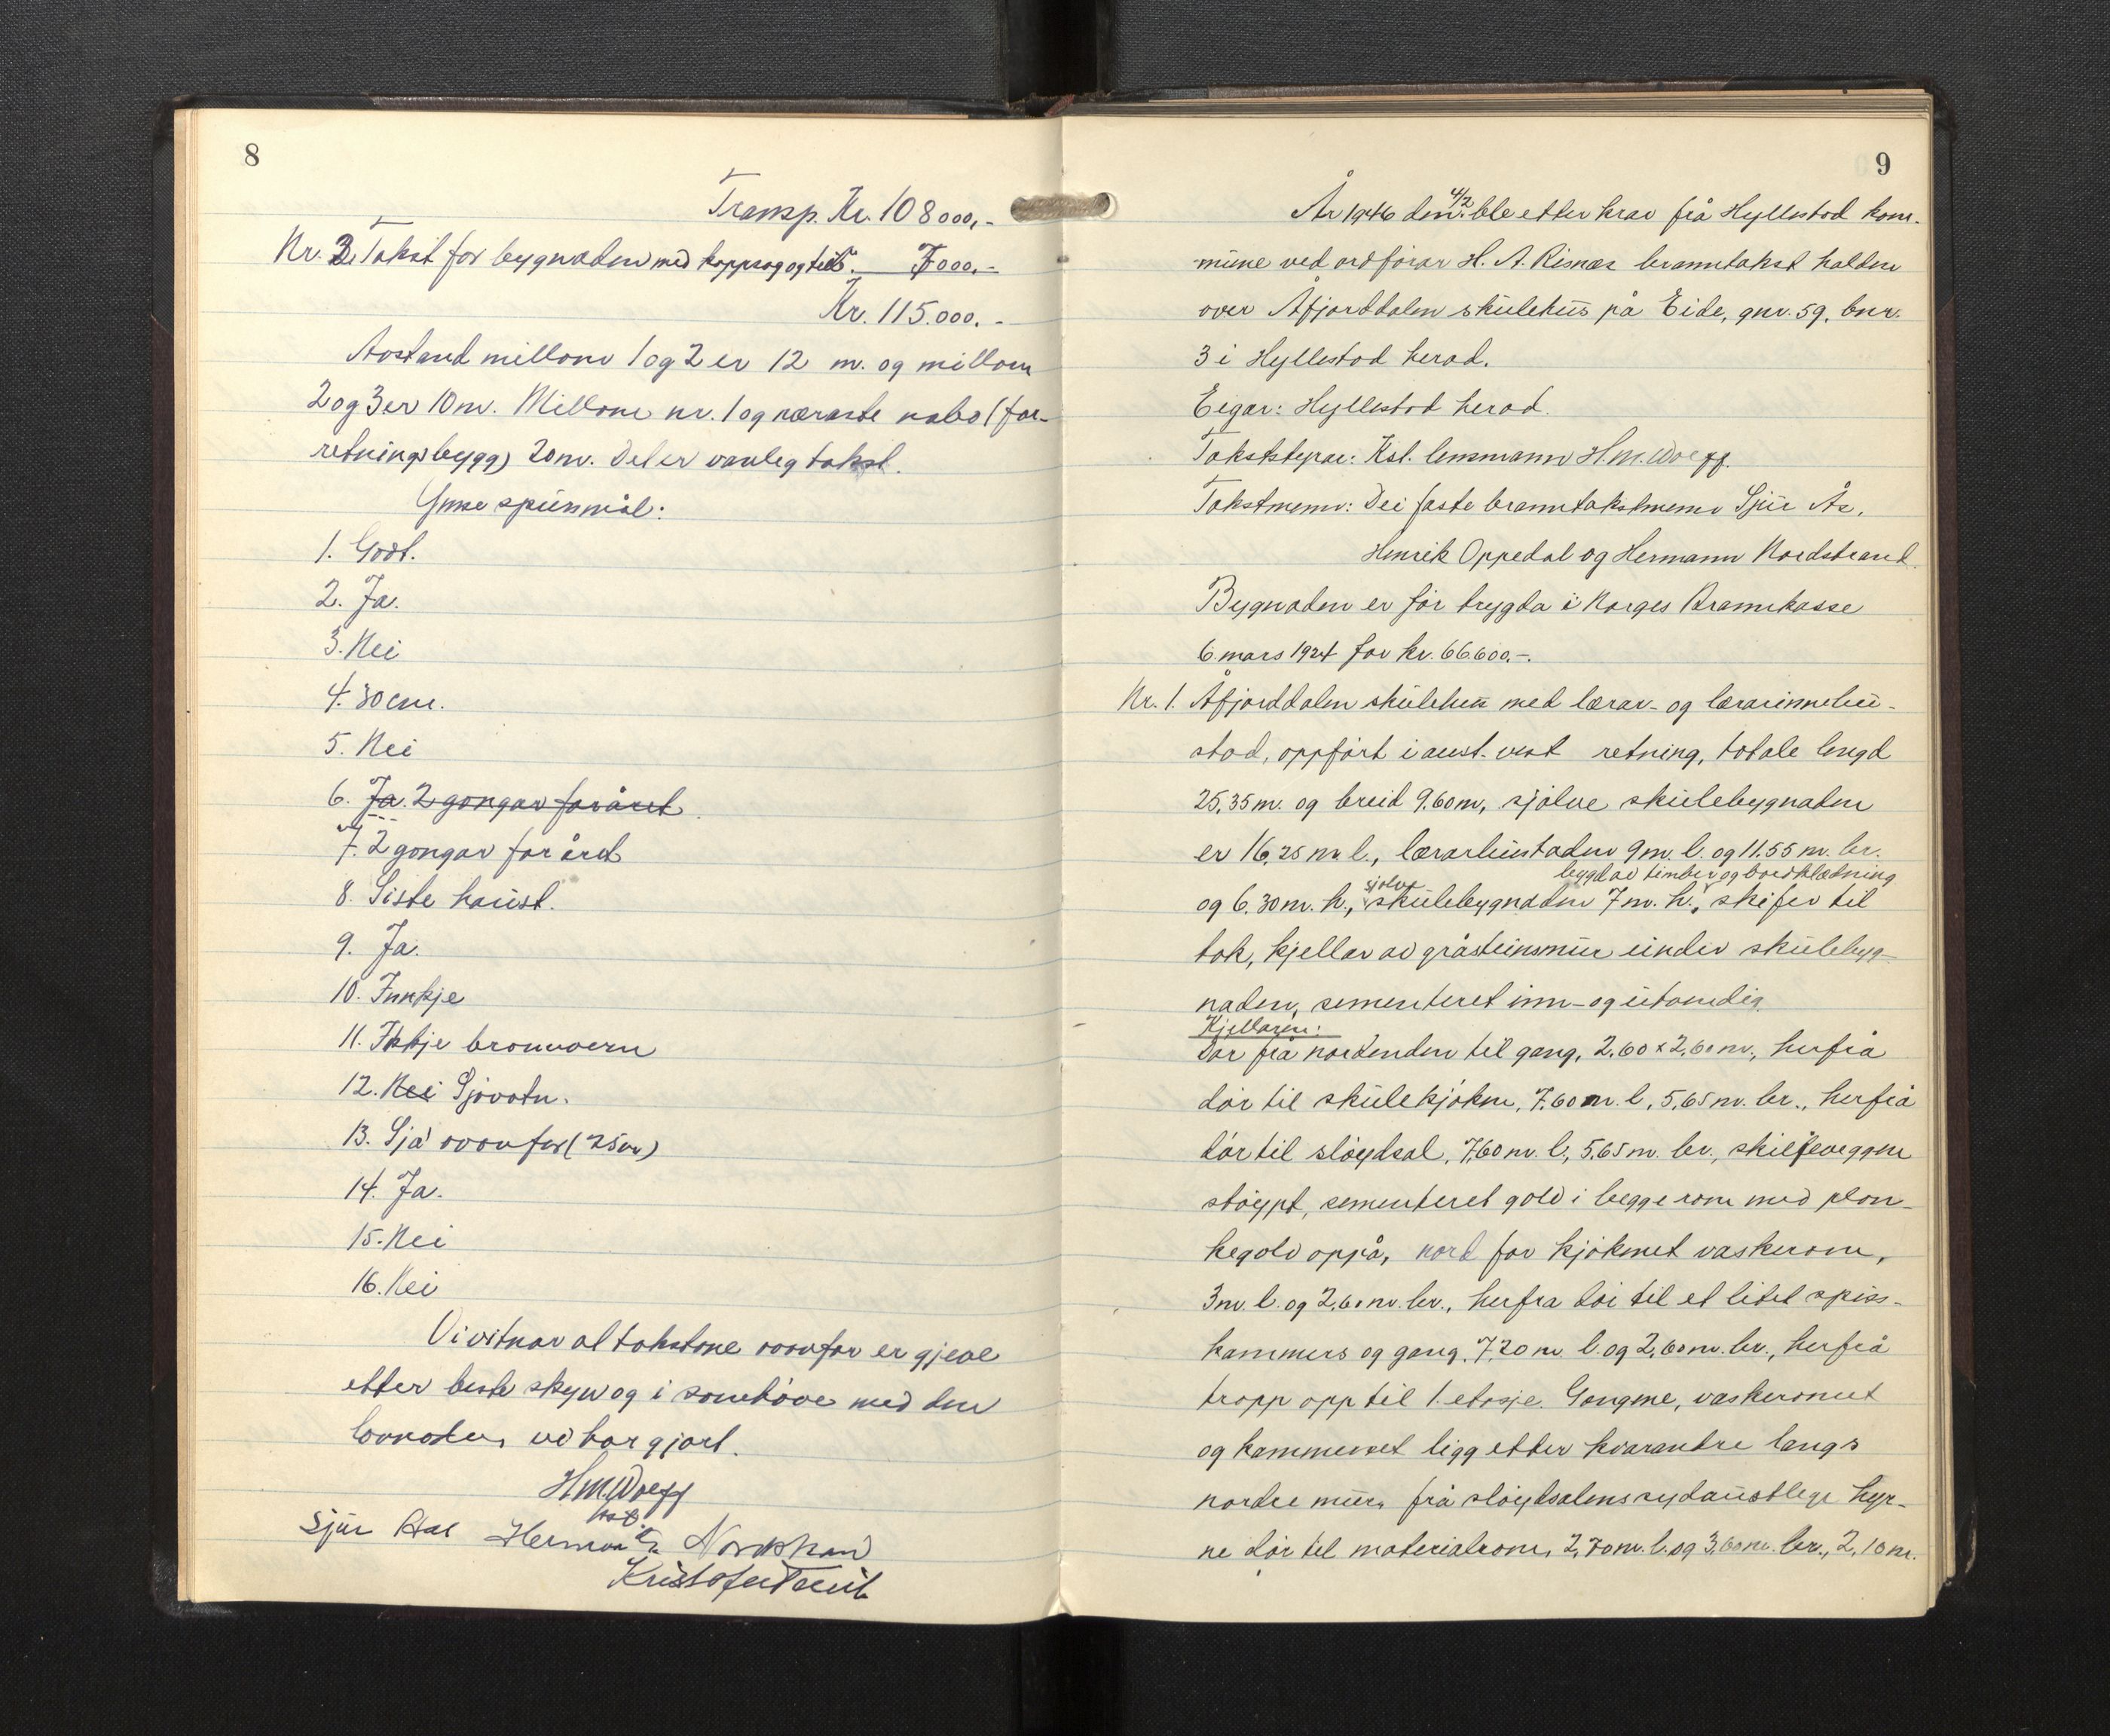 8
Transp. Kr. 108000,-
Nr. 3. Takst for bygnaden med kappsag og tilb. 7000,-
Kr. 115.000.-
Avstand millom 1 og 2 er 12 m. og millom
2 og 3 er 10 m. Millom nr. 1 og næraste nabo (for-
retningsbygg) 20 m. Det er vanleg takst.
Ymse spursmål:
1. Godt.
2. Ja.
3. Nei
4. 30 cm.
5. Nei
6. Ja. 2 gongar for året
7. 2 gongar for året
8. Siste haust.
9. Ja.
10. Innkje
11. Ikkje brannvern
12. Nei Sjøvatn.
13. Sjå ovanfor (25 m)
14. Ja.
15. Nei
16. Nei
Vi vitnar at takstane ovanfor er gjeve
etter beste skyn og i samhøve med den
lovnaden vi har gjort.
H.M. Woegg
kst.
Sjur Aas Hermann Nordstrand
Kristofer
9
År 1946 den 4/2 ble etter krav frå Hyllestad kom-
mune ved ordførar H. A. Risnes branntakst halden
over Åfjorddalen skulehus på Eide, gnr. 59, bnr.
3 i Hyllestad herad.
Eigar: Hyllestad herad.
Takststyrar: Kst. lensmann H.M. Woegg.
Takstmenn: Dei faste branntakstmenn Sjur Ås,
Henrik Oppedal og Hermann Nordstrand.
Bygnaden er før trygda i Norges Brannkasse
6. mars 1924 for kr. 66.600,-.
Nr. 1. Åfjorddalen skulehus med lærar- og lærarinnebu-
stad, oppført i aust-vest retning, totale lengd
25,35 m. og breid 9.60 m, sjølve skulebygnaden
er 16,25 m. l., lærarbustaden 9 m. l. og 11.55 m. br.
bygd av timber og bordklædning
og 6,30 m. h., sjølve skulebygnaden 7 m. h., skifer til
tak, kjellar av gråsteinsmur under skulebyg-
naden, sementeret inn- og utvendig.
Kjellaren:
Dør frå nordenden til gang, 2,60 x 2,60 m., herfrå
dør til skulekjøken, 7,60 m. l, 5,65 m. br., herfrå
dør til sløydsal, 7,60 m. l., 5,65 m. br., skilleveggen
støypt, sementeret golv i begge rom med plan-
kegolv oppå, nord for kjøkenet vaskerom,
3 m. l. og 2,60 m. br., herfra dør til et litet spiss-
kammers og gang, 7,20 m. l. og 2,60 m. br., herfrå
tropp opp til 1. etasje. Gongene, vaskeromet
og kammerset ligg etter kvarandre langs
nordre mur, frå sløydsalens sydaustlege hyr-
ne dør til materialrom, 2,70 m. l. og 3,60 m. br., 2,10 m.